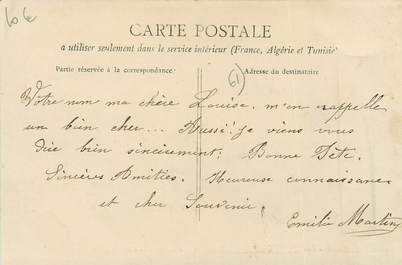 60 €
CARTE POSTALE
a utiliser seulement dans le service intérieur (France, Algérie et Tunisie)
Partie réservée à la correspondance
61
Adresse du destinataire
Votre nom ma chère Louise, m'en rappelle
un bien cher... Aussi! je viens vous
dire bien sincèrement: Bonne Fête.
Sincères Amitiés. Heureuse connaissance
et cher Souvenir.
Emilie Martin